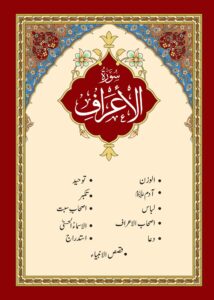 سُورَة
الأعراف
الوزن
توحید
آدم علیہ السلام
تکبر
لباس
اصحاب سبت
اصحاب الاعراف
الاسماء الحسنیٰ
دعا
استدراج
قصص الانبیاء